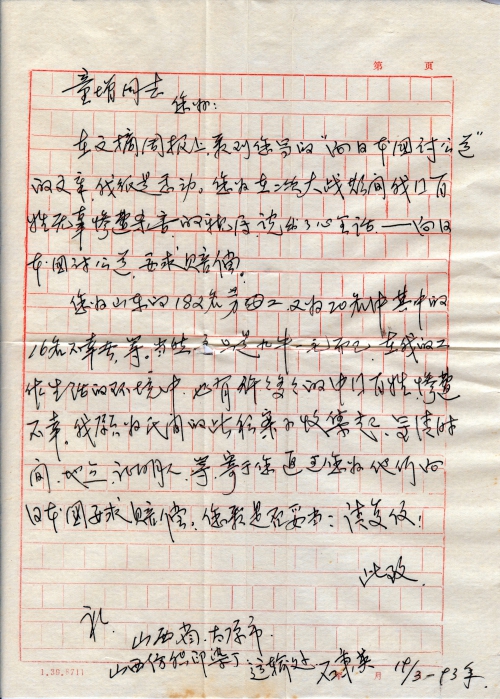 第 页
童增同志
您好:
在文摘周报上,看到您写的“向日本国讨公道”
的文章,我很是感动。您为在二次大战期间我国百
姓无辜惨遭杀害的 说出了心里话——向日
本国讨公道,要求赔偿。
您为山东的182名劳工,又为20名中其中的
16名不幸 等。当然 这只是九牛一毛而已,在我的工
作生活的环境中,也有许多 的中国百姓,惨遭
不幸。我愿为民间的此 收集 写清时
间、地点、证明人,等寄于您,通过您为他们向
日本国要求赔偿。您 是否妥当:请复信!
此致
礼
山西省、太原市
山西纺织印染厂 运输处 石 英 19/3-93年